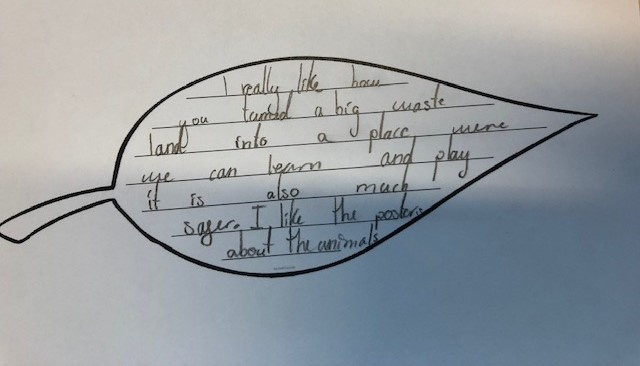 I really like how
you turnd a big waste
land into a place were
we can learn and play
it is also much
safer. I like the posters
about the animals